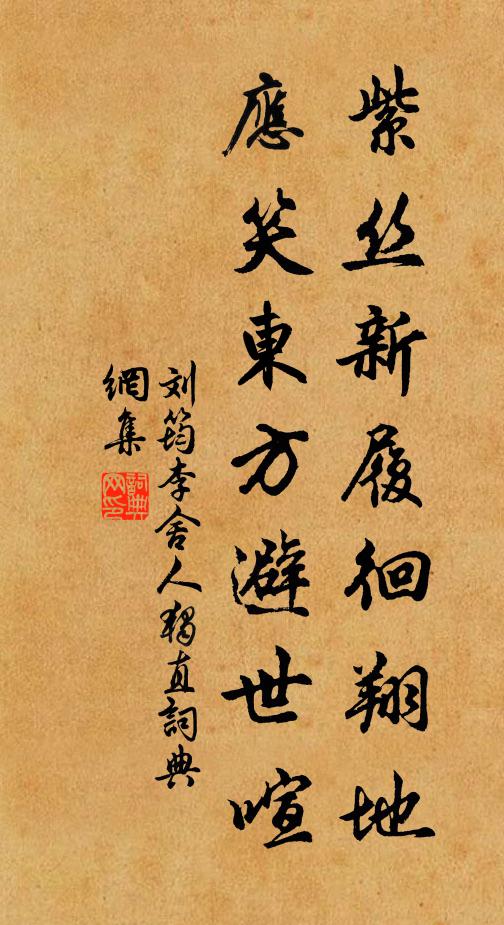 紫丝新履徊翔地
應笑東方避世喧
刘筠李舍人獨直詞典
網集
詞典
网印